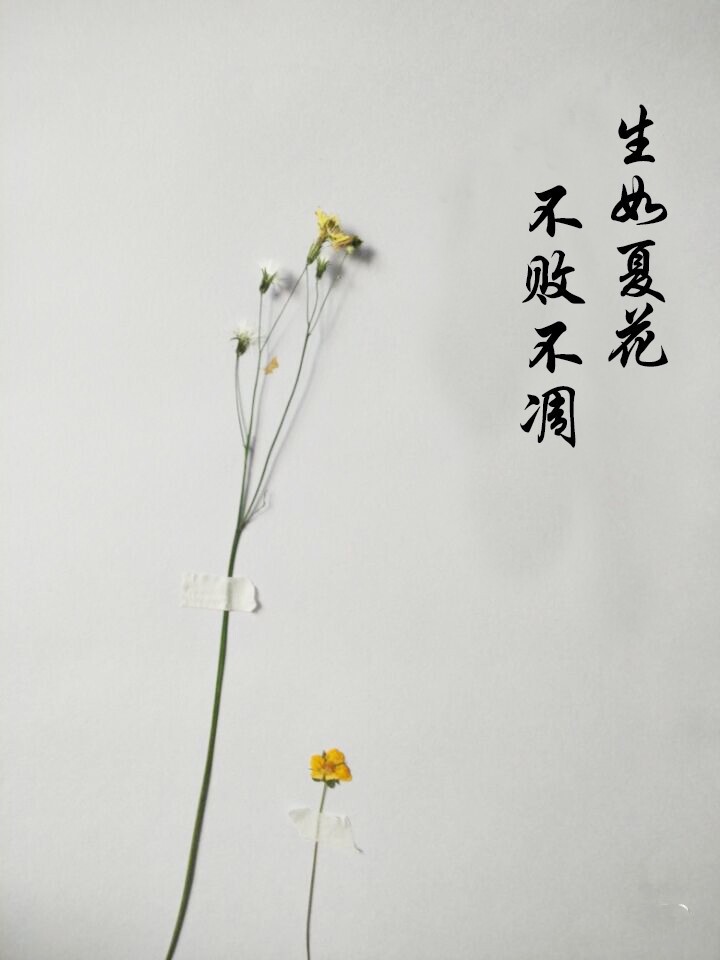 生如夏花
不败不凋